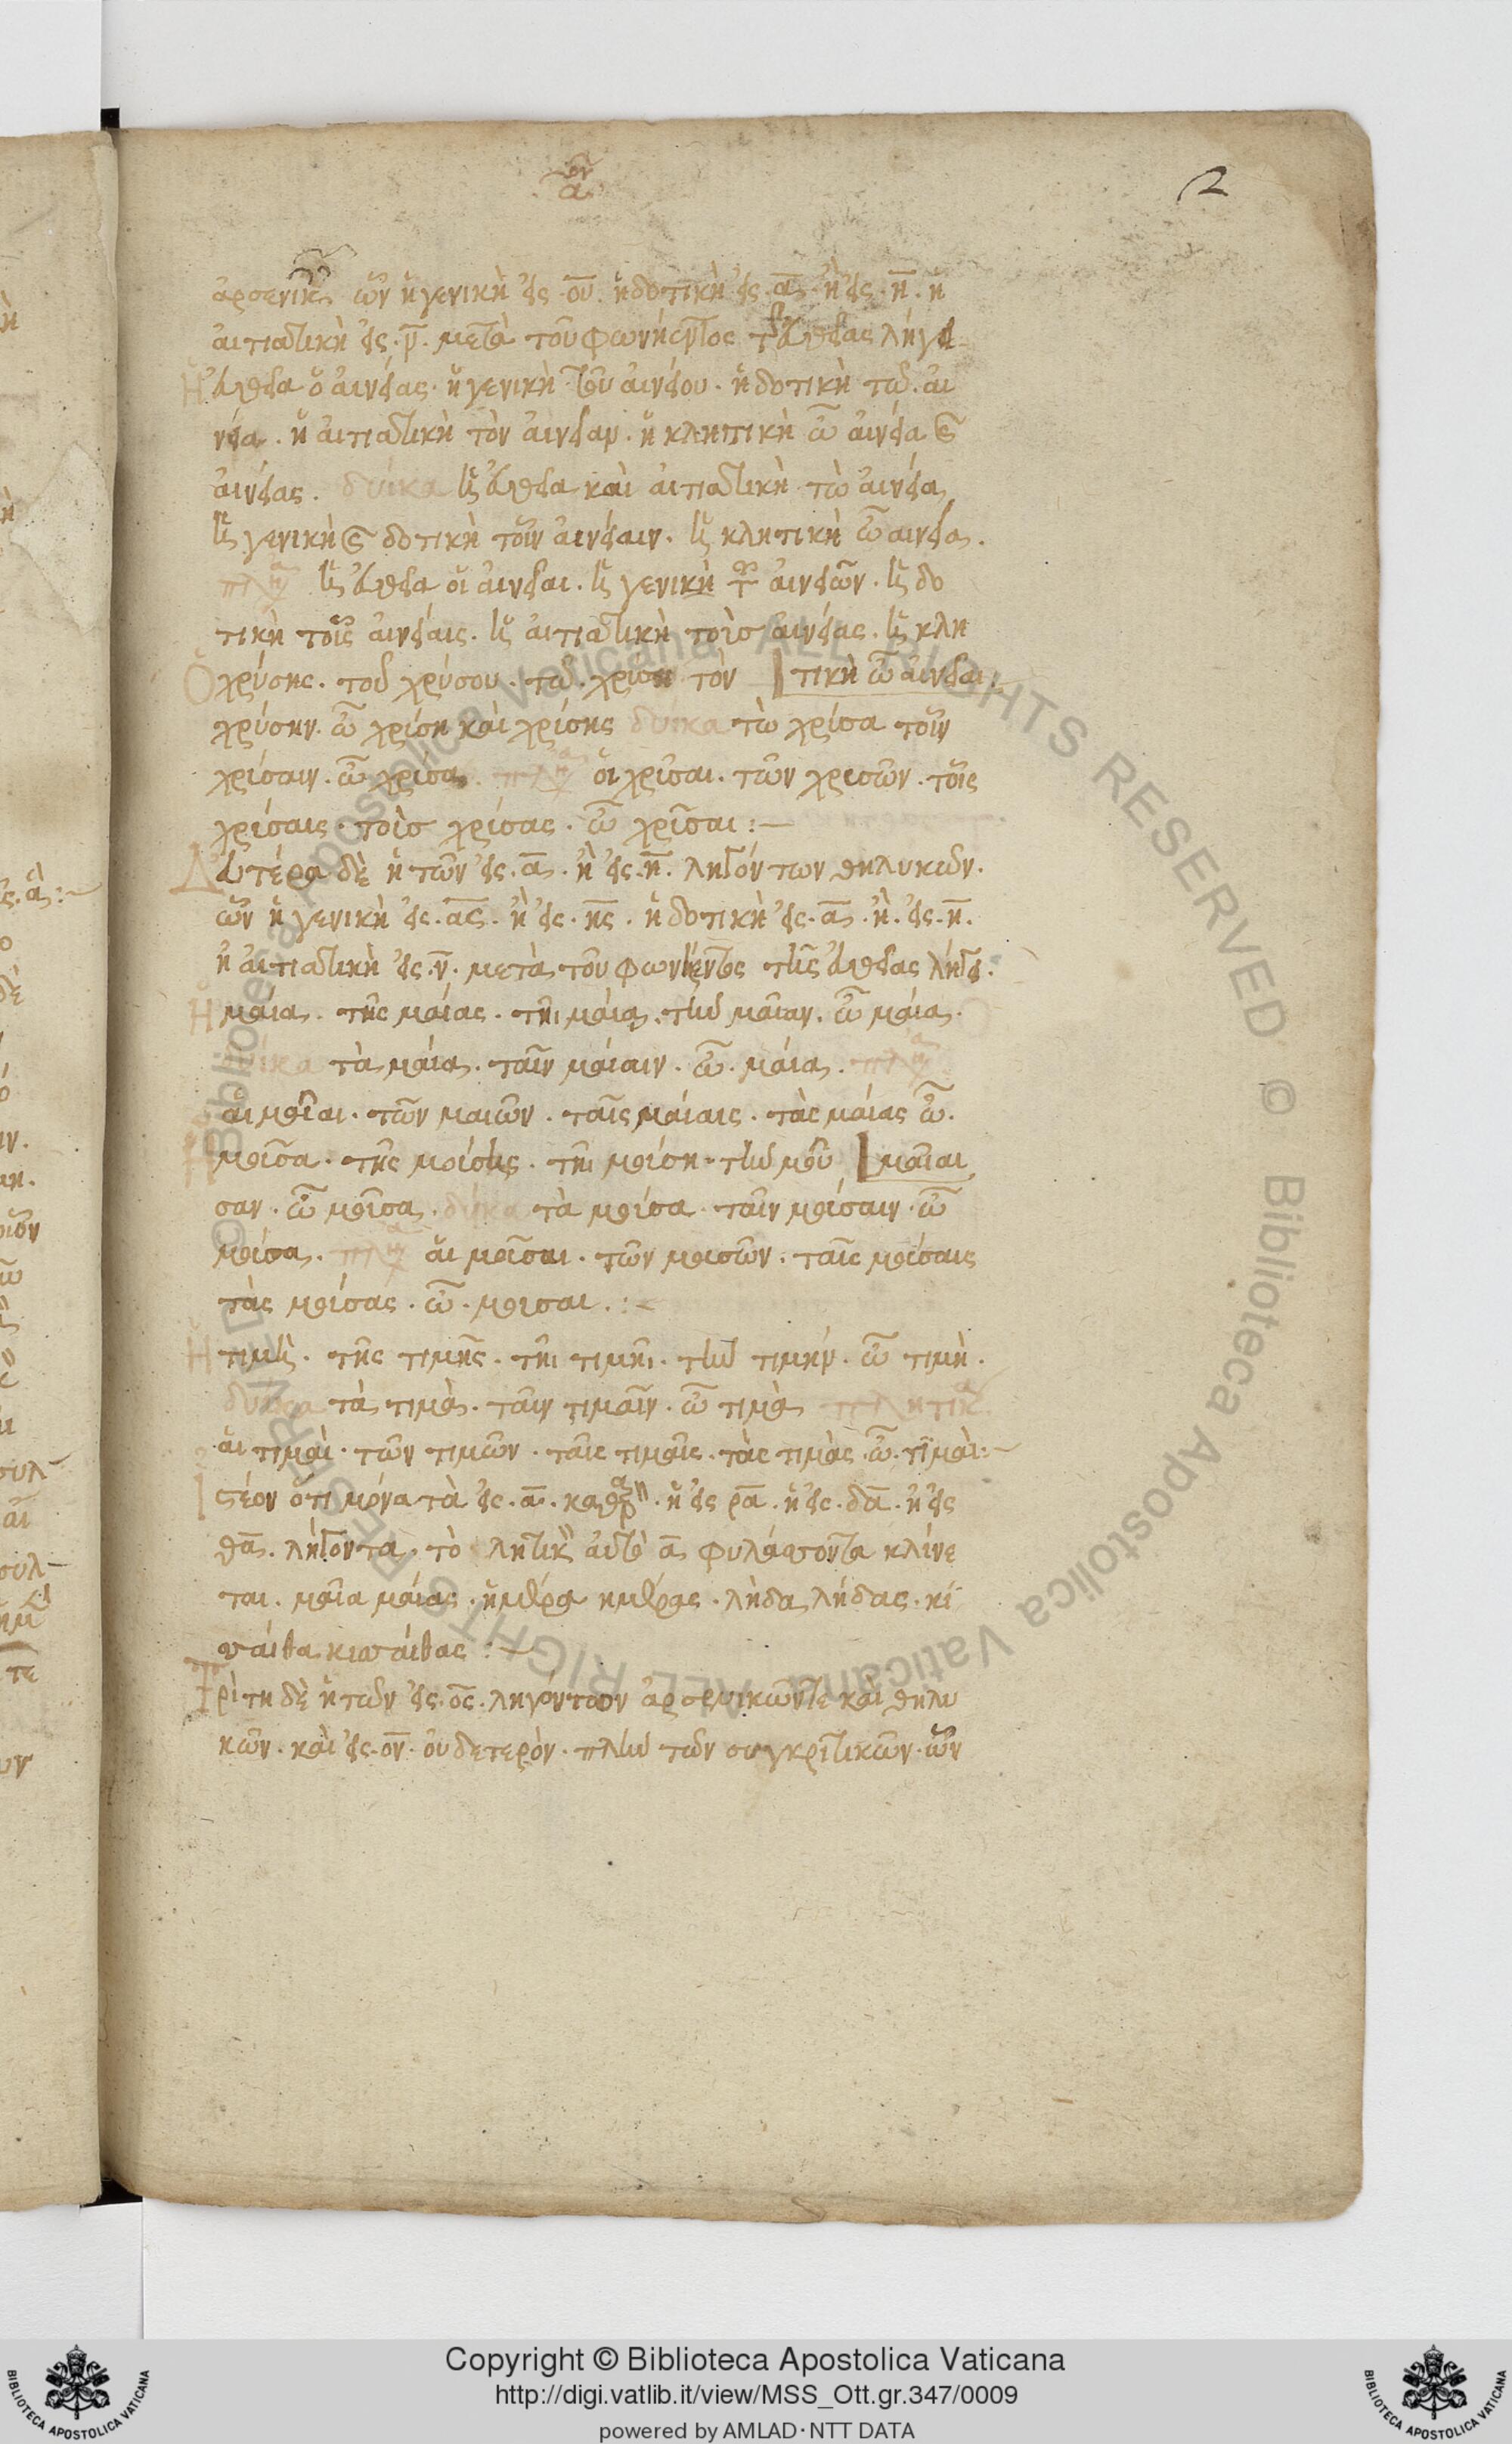 2
ἀρσενικῶν ὧν ἡ γενικὴ εἰς ου. ἡ δοτικὴ εἰς α. ἢ εἰς η. ἡ
αἰτιατικὴ εἰς ν. μετὰ τοῦ φωνήεντος τῆς εὐθείας λήγει
Ἡ εὐθεῖα ὁ αἰνείας. ἡ γενικὴ τοῦ αἰνείου. ἡ δοτικὴ τῶ. αἰ
νεία. ἡ αἰτιατικὴ τὸν αἰνείαν. ἡ κλητικὴ ὦ αἰνεία καὶ
αἰνείας. δυϊκὰ ἡ εὐθεῖα καὶ αἰτιατικὴ τὼ αἰνεία
ἡ γενικὴ καὶ δοτικὴ τοῖν αἰνείαιν. ἡ κλητικὴ ὦ αἰνεία.
ἡ εὐθεῖα οἱ αἰνεῖαι. ἡ γενικὴ τῶν αἰνειῶν. ἡ δο
τικὴ τοῖς αἰνείαις. ἡ αἰτιατικὴ τοὺς αἰνείας. ἡ κλη
Ὁ χρύσης. τοῦ χρύσου. τῶ. χρύση τὸν τικὴ ὦ αἰνεῖαι:
χρύσην. ὦ χρίση καὶ χρίσης δυϊκα τὼ χρίσα τοῖν
χρίσαιν. ὦ χρίσα. οἱ χρῖσαι. τῶν χρισῶν. τοῖς
χρίσαις. τοὺς χρίσας. ὦ χρῖσαι:
Δευτέρα δὲ ἡ τῶν εἰς. α. ἢ εἰς. η. ληγόντων θηλυκῶν.
ὧν ἡ γενικὴ εἰς. ας. ἢ εἰς. ης. ἡ δοτικὴ εἰς. α. ἢ. εἰς. η.
ἡ αἰτιατικὴ εἰς. ν. μετὰ τοῦ φωνήεντος τῆς εὐθείας λήγει.
Ἡ μαία. τῆς μαίας. τῆι μαία. τὴν μαῖαν. ὦ μαία.
δυϊκα τὰ μαία. ταῖν μαίαιν. ὦ. μαία.
αἱ μαῖαι. τῶν μαιῶν. ταῖς μαίαις. τὰς μαίας ὦ.
Ἡ μοῦσα. τῆς μούσης. τῆι μούση. τὴν μοῦ μαῖαι
σαν. ὦ μοῦσα. δυϊκα τὰ μούσα. ταῖν μούσαιν. ὦ
μούσα. αἱ μοῦσαι. τῶν μουσῶν. ταῖς μούσαις
τὰς μούσας. ὦ. μουσαι.:
Ἡ τιμὴ. τῆς τιμῆς. τῆι τιμῆι. τὴν τιμήν. ὦ τιμὴ.
δυϊκα τὰ τιμὰ. ταῖν τιμαῖν. ὦ τιμὰ
αἱ τιμαὶ. τῶν τιμῶν. ταῖς τιμαῖς. τὰς τιμὰς. ὦ. τιμαὶ:
Ἰστέον ὅτι μόνα τὰ εἰς. α. καθαρὸν. ἢ εἰς ρα. ἢ εἰς. δα. ἢ εἰς
θα. λήγοντα. τὸ α φυλάττοντα κλίνε
ται. μαῖα μαίας. ἡμέρα ημέρας. λήδα λήδας. κι
σσαίθα κισσαίθας:
Τρίτη δὲ ἡ τῶν εἰς. ος. ληγόντων ἀρσενικῶν τε καὶ θηλυ
κῶν. καὶ εἰς. ον. οὐδετερὸν. πλὴν τῶν συγκριτικῶν. ὧν
Copyright © Biblioteca Apostolica Vaticana
http://digi.vatlib.it/view/MSS_Ott.gr.347/0009
powered by AMLAD · NTT DATA
BIBLIOTECA APOSTOLICA VATICANA
BIBLIOTECA APOSTOLICA VATICANA
© Biblioteca Apostolica Vaticana ALL RIGHTS RESERVED © Biblioteca Apostolica Vaticana ALL RIGHTS RESERVED